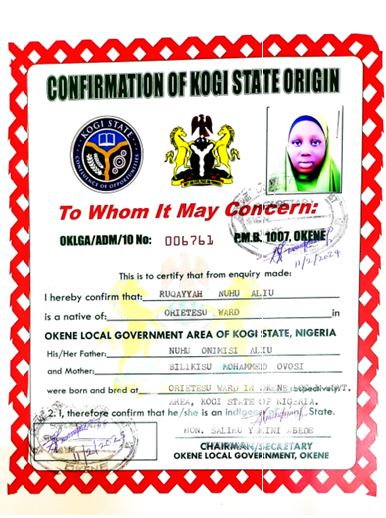 CONFIRMATION OF KOGI STATE ORIGIN
KOGI STATE
CONFLUENCE OF OPPORTUNITIES
To Whom It May Concern:
OKLGA/ADM/10 No: 006761 P.M.B. 1007, OKENE
11/2/2024
This is to certify that from enquiry made:
I hereby confirm that: RUQAYYAH NUHU ALIU
is a native of: OKIETESU WARD in
OKENE LOCAL GOVERNMENT AREA OF KOGI STATE, NIGERIA
His/Her Father: NUHU ONIMISI ALIU
and Mother: BILIKISU MOHAMMED OVOSI
were born and bred at ORIETESU WARD IN OKENE respectively
AREA, KOGI STATE OF NIGERIA.
2. I, therefore confirm that he/she is an indigene State.
HON. SALIHU
CHAIRMAN/SECRETARY
OKENE LOCAL GOVERNMENT, OKENE
OKENE